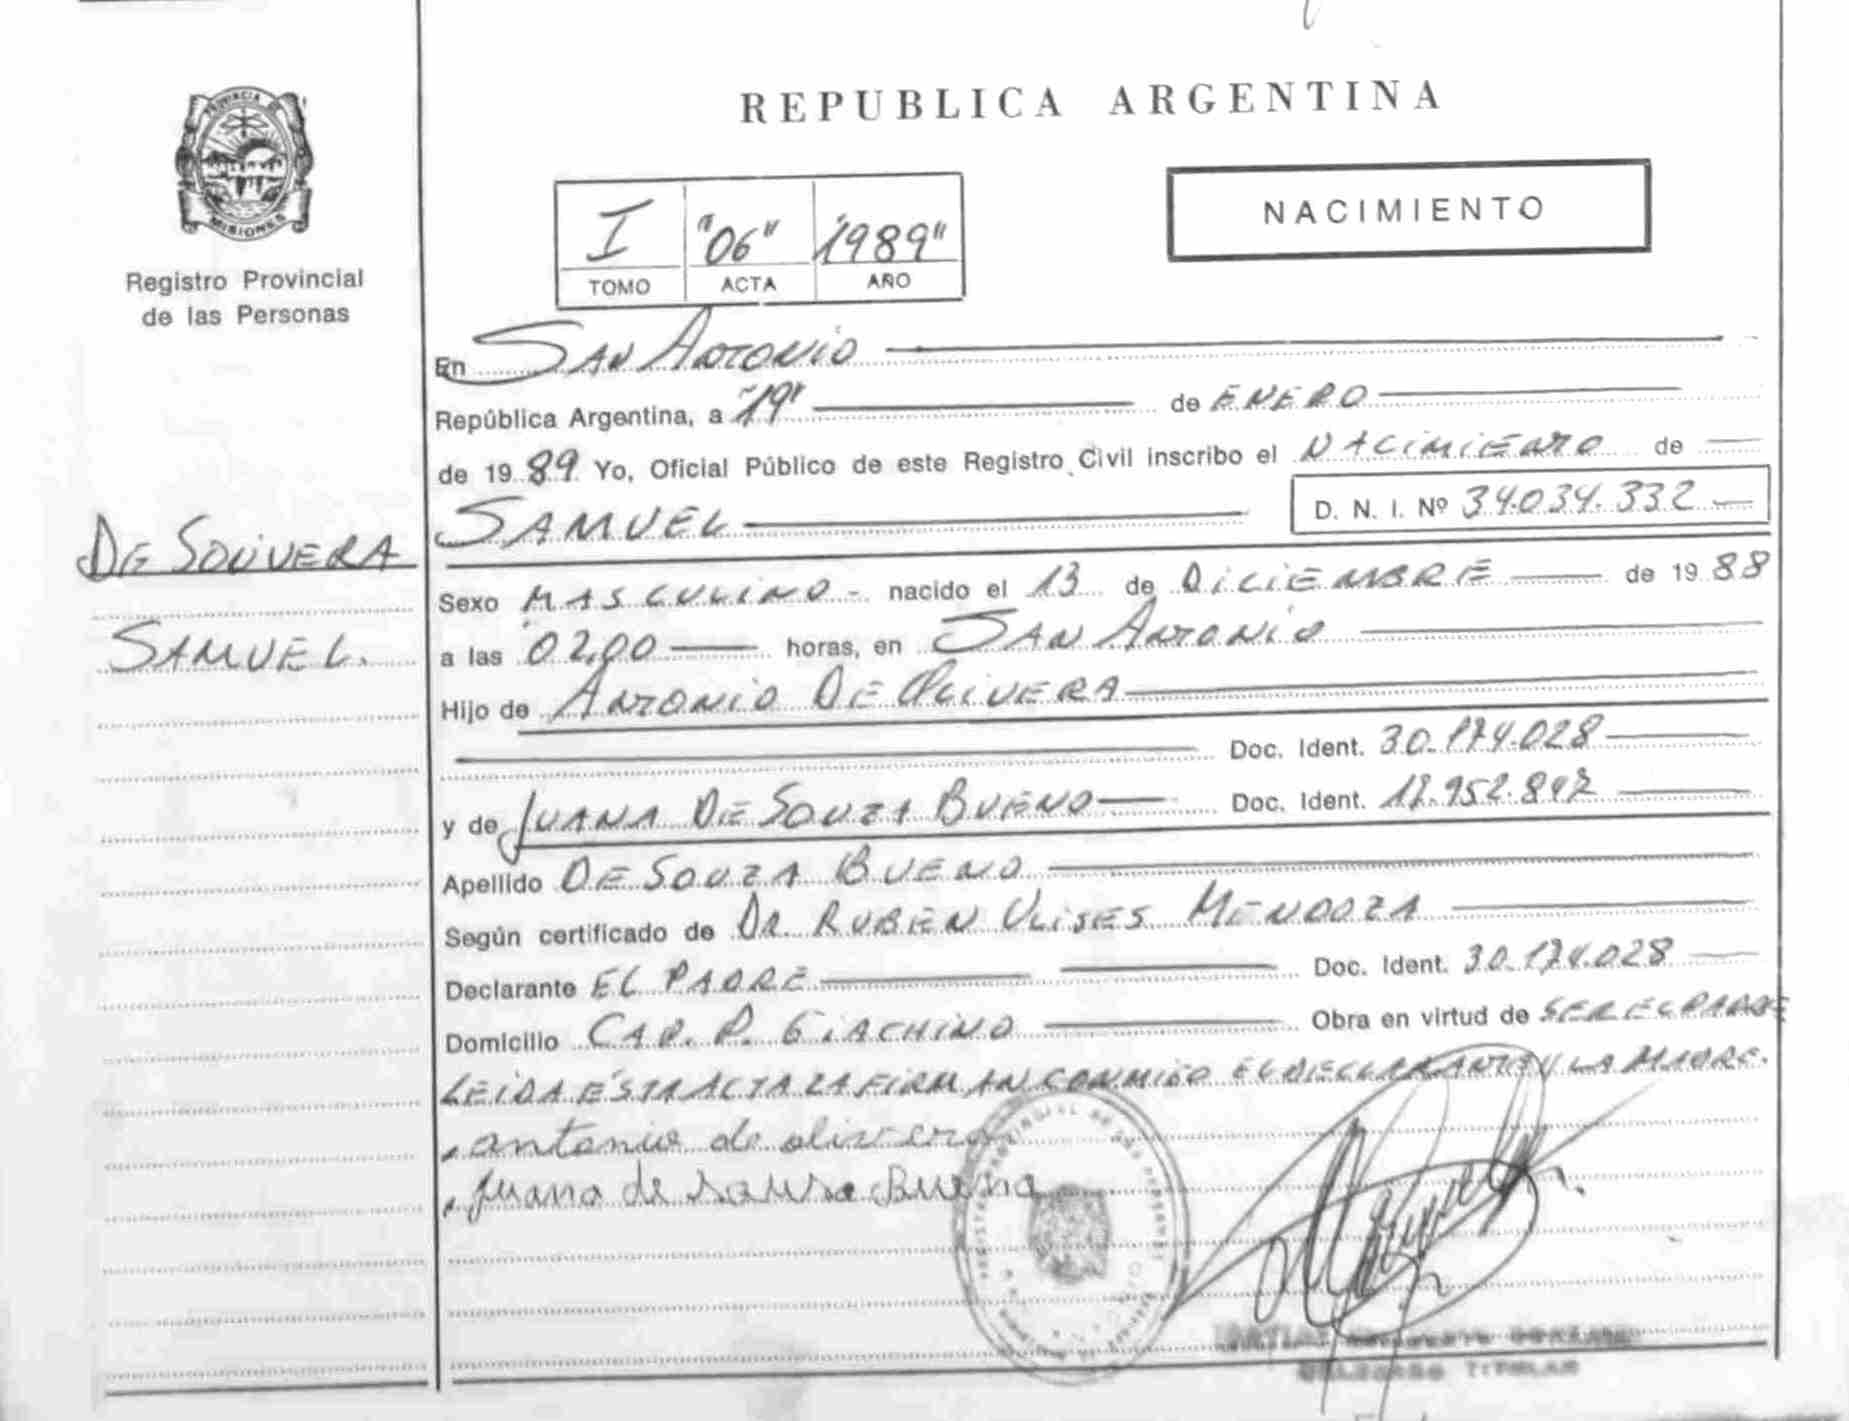 REPUBLICA ARGENTINA
PROVINCIA DE
MISIONES
Registro Provincial
de las Personas
NACIMIENTO
I "06" "1989"
TOMO ACTA AÑO
En SAN ANTONIO
República Argentina, a "19" de ENERO
de 19 89 Yo, Oficial Público de este Registro Civil inscribo el NACIMIENTO de
SAMUEL D. N. I. Nº 34.034.332
DE
SAMUEL.
Sexo MASCULINO - nacido el 13 de DICIEMBRE de 19 88
a las 02,00 horas, en SAN ANTONIO
Hijo de ANTONIO DE OLIVERA
Doc. Ident. 30.174.028
y de JUANA DE SOUZA BUENO Doc. Ident. 17.952.847
Apellido DE SOUZA BUENO
Según certificado de DR. RUBEN ULISES MENDOZA
Declarante EL PADRE Doc. Ident. 30.174.028
Domicilio CAP. P. GIACHINO Obra en virtud de SER EL PADRE
LEIDA ESTA ACTA LA FIRMAN CONMIGO EL DECLARANTE Y LA MADRE.
antonio de olivera
Juana de Bueno
TITULAR